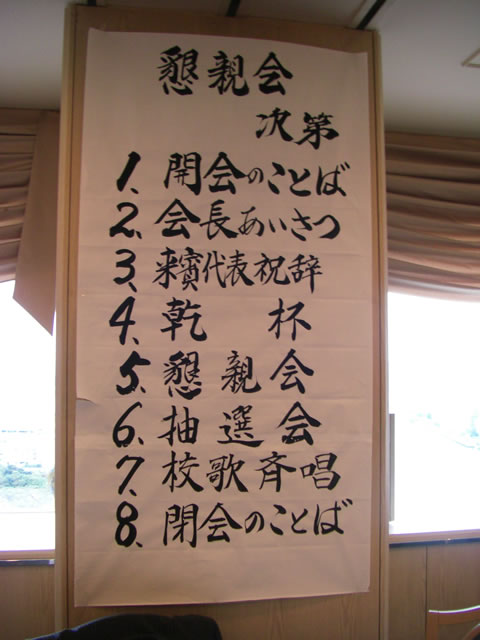 懇親会
次第
1、開会のことば
2、会長あいさつ
3、来賓代表祝辞
4、乾 杯
5、懇親会
6、抽選会
7、校歌斉唱
8、閉会のことば